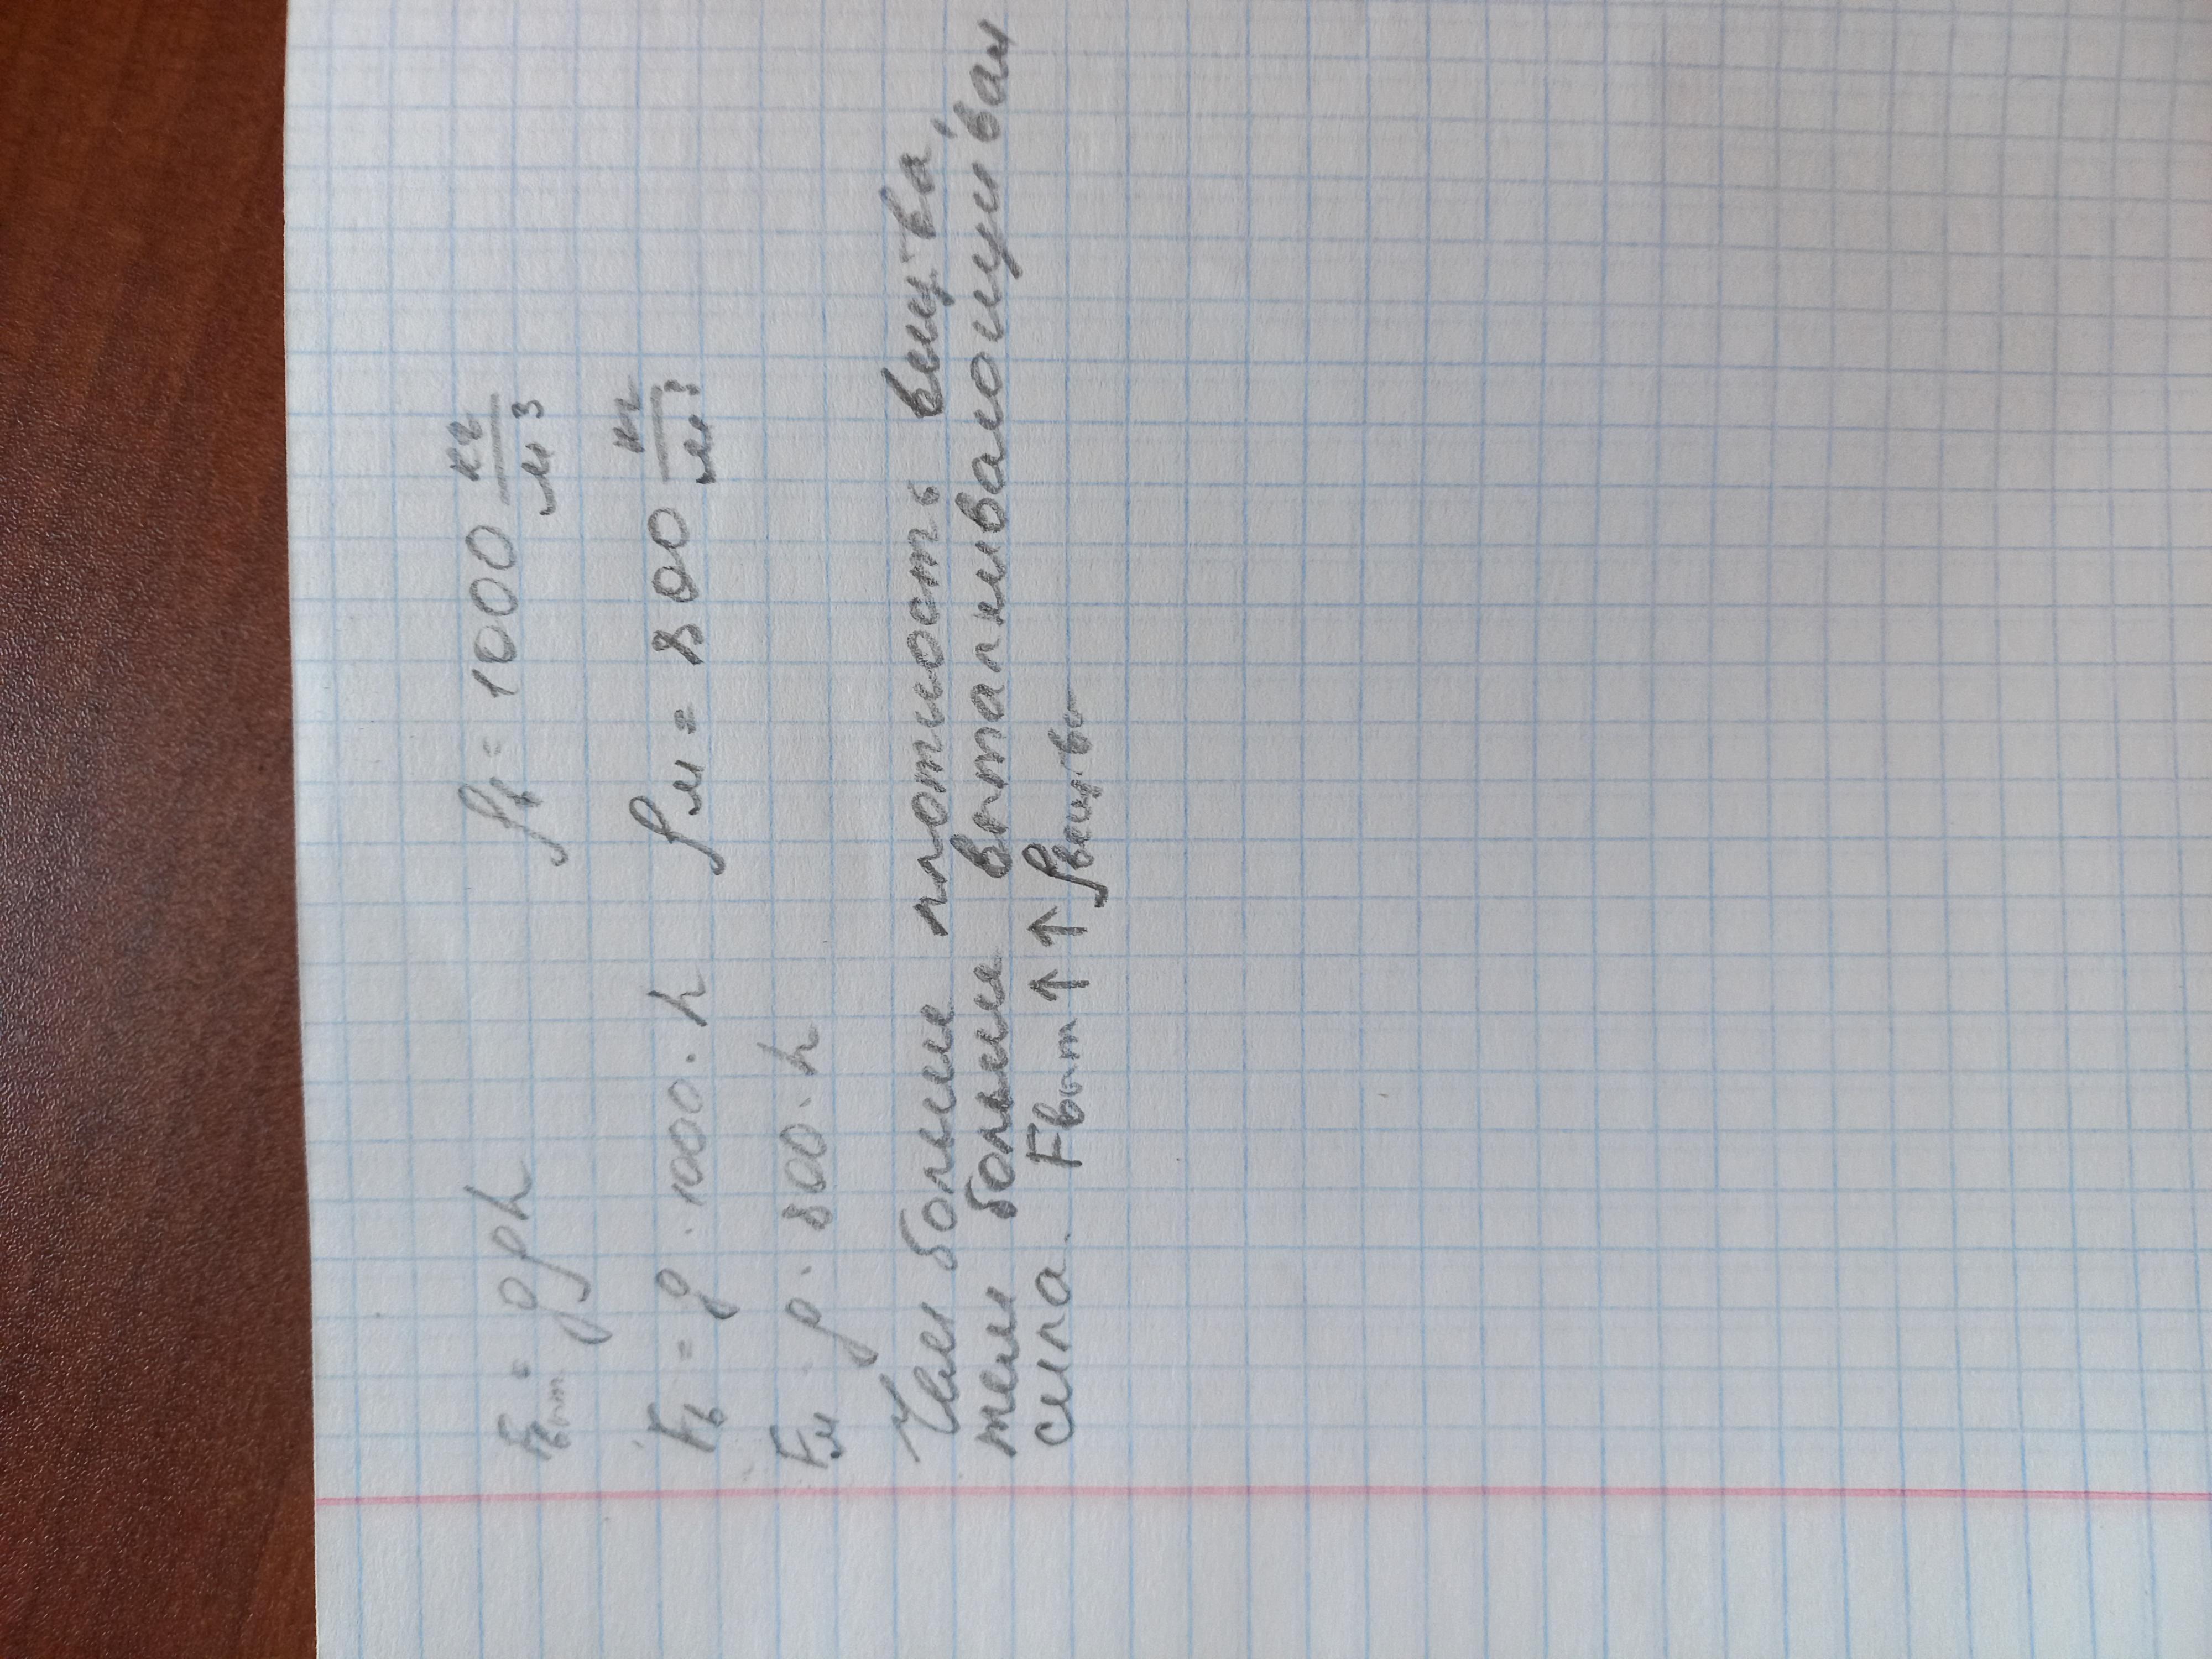 Fвыт = gρh ρв = 1000 кг/м³
Fв = g · 1000 · h ρм = 800 кг/м³
Fм g · 800 · h
Чем больше плотность вещ-ва,
тем больше выталкивалощуиван
сила. Fвыт ↑ ↑ ρвещ-во